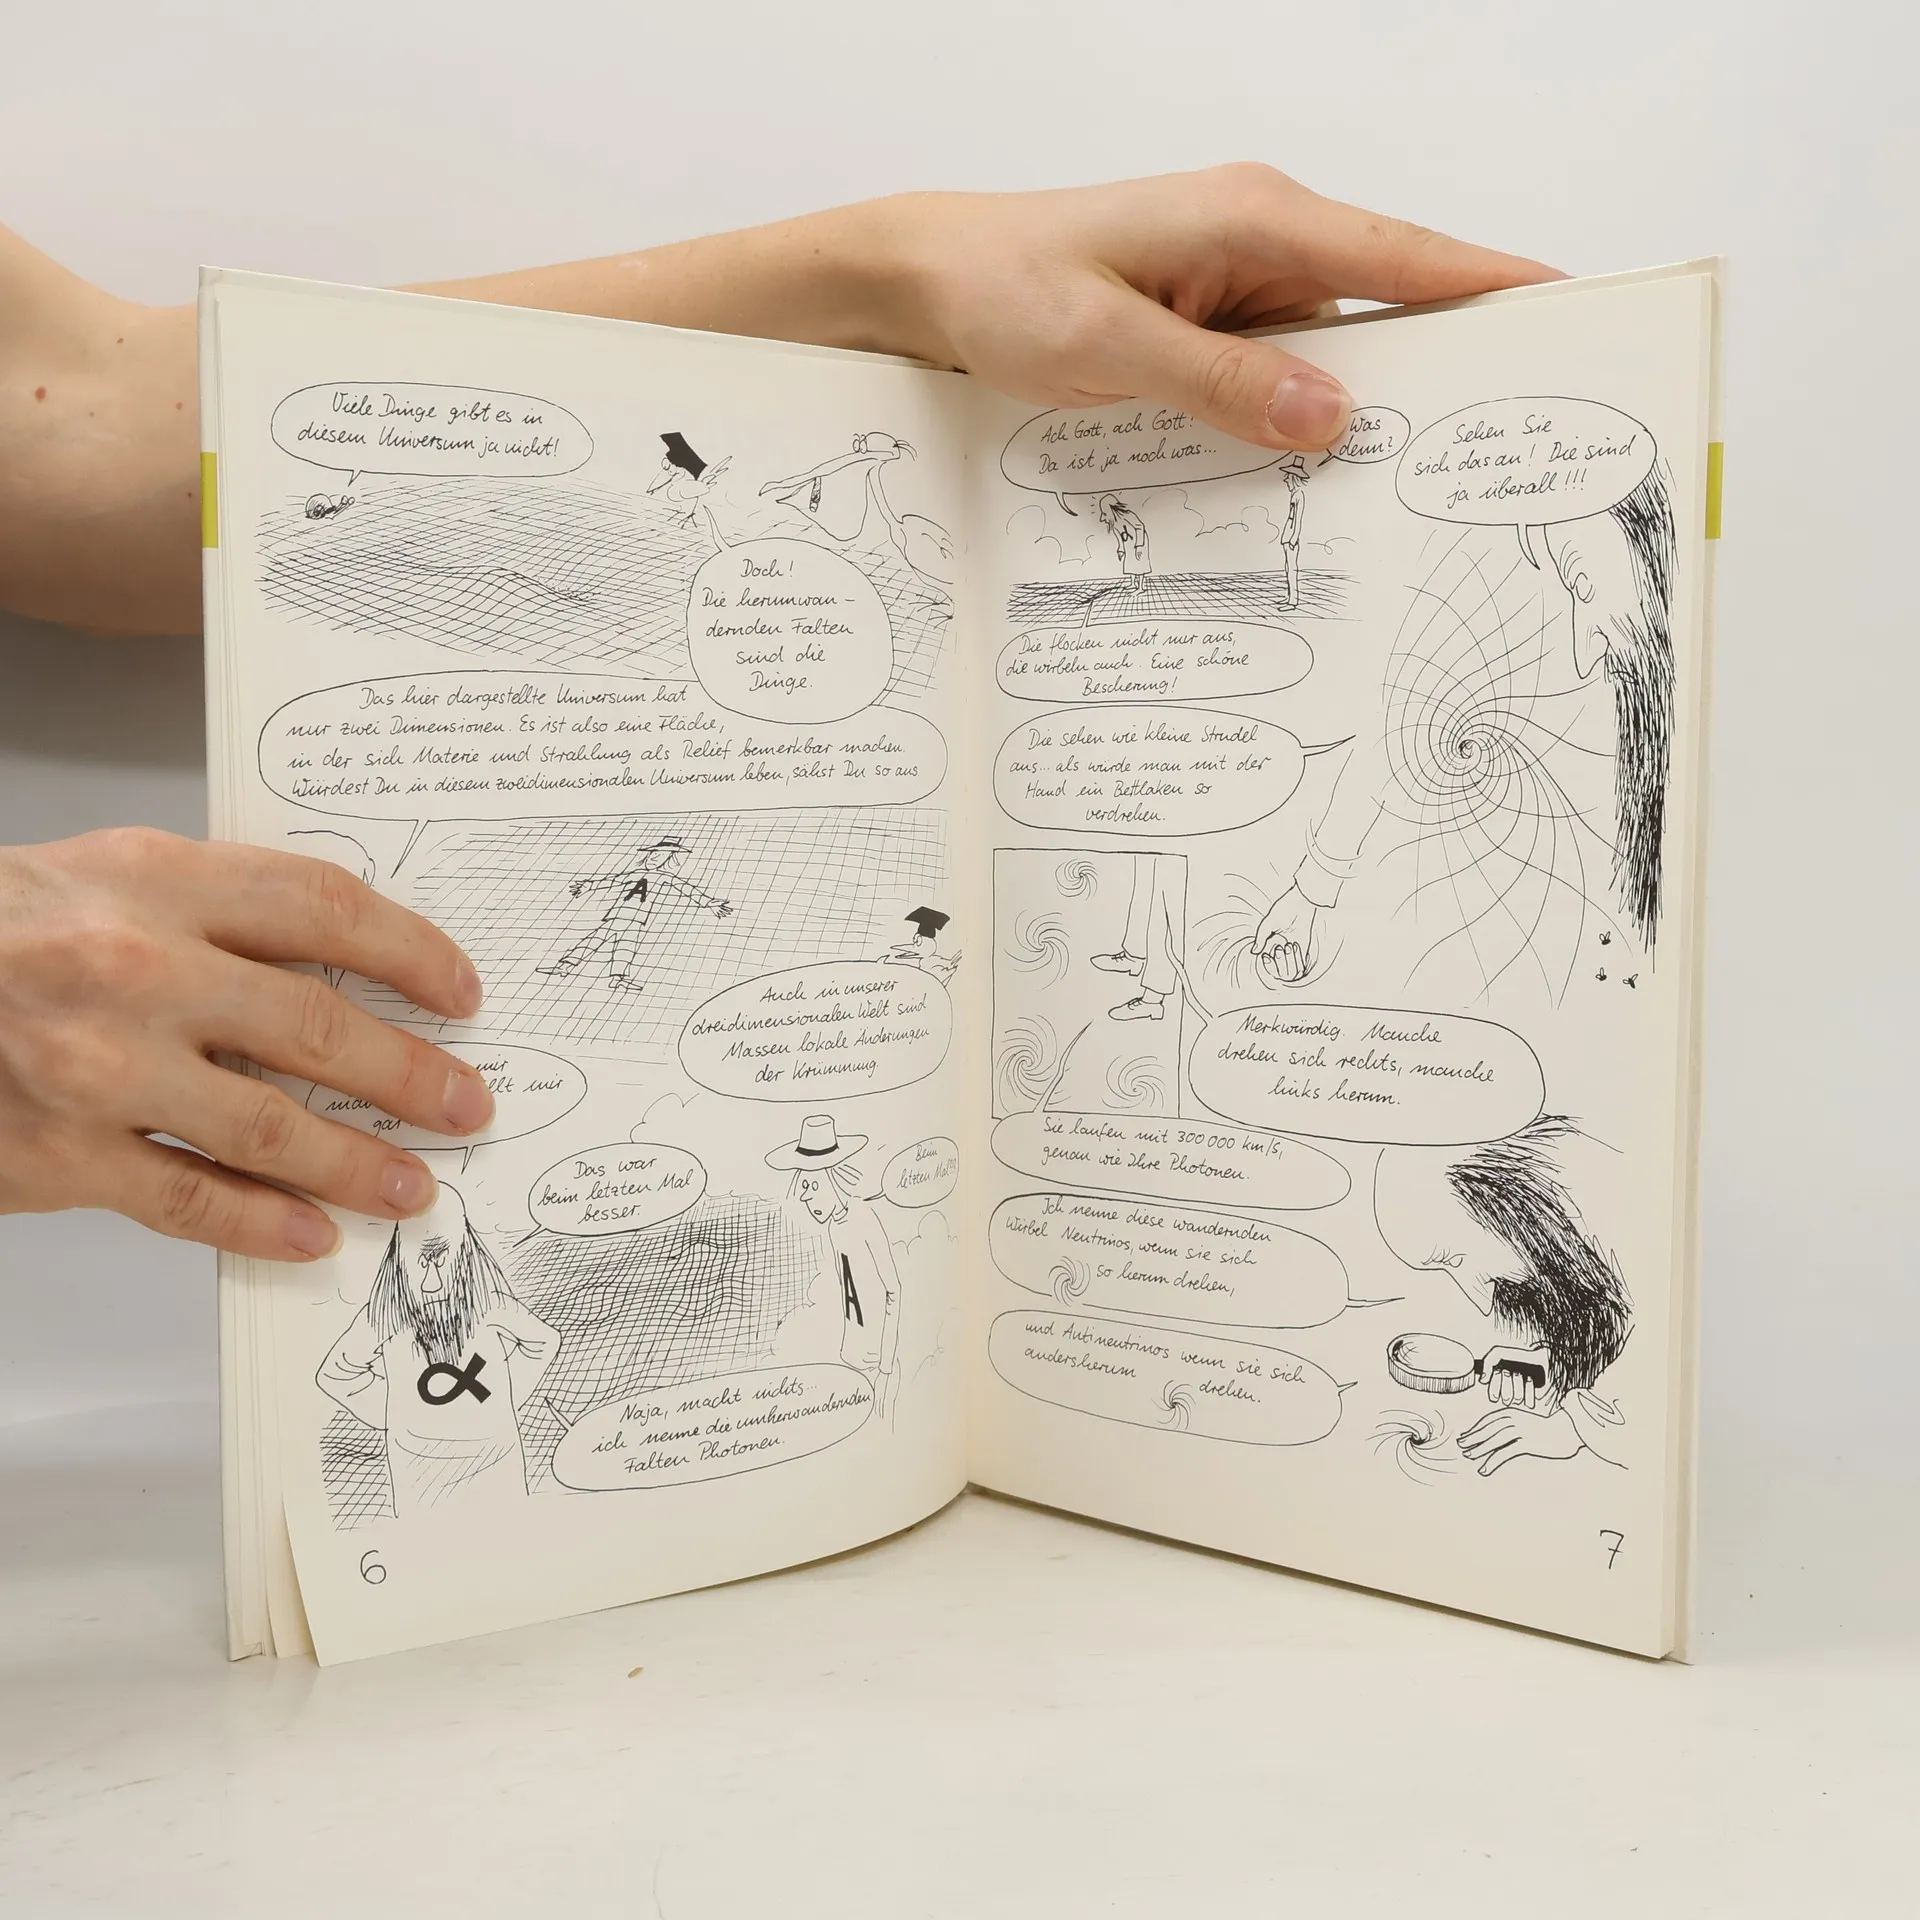 Viele Dinge gibt es in
diesem Universum ja nicht!
Doch!
Die herumwan-
dernden Falten
sind die
Dinge.
Das hier dargestellte Universum hat
nur zwei Dimensionen. Es ist also eine Fläche,
in der sich Materie und Strahlung als Relief bemerkbar machen.
Würdest Du in diesem zweidimensionalen Universum leben, sähst Du so aus
A
Auch in unserer
dreidimensionalen Welt sind
Massen lokale Änderungen
der Krümmung.
mir
mir
Das war
beim letzten Mal
besser.
Beim
letzten Mal?!?
α
A
Naja, macht nichts...
ich nenne die umherwandernden
Falten Photonen.
6
Ach Gott, ach Gott!
Da ist ja noch was...
Was
denn?
Sehen Sie
sich das an! Die sind
ja überall!!!
Die flocken nicht nur aus,
die wirbeln auch. Eine schöne
Bescherung!
Die sehen wie kleine Strudel
aus... als würde man mit der
Hand ein Bettlaken so
verdrehen.
Merkwürdig. Manche
drehen sich rechts, manche
links herum.
Sie laufen mit 300 000 km/s,
genau wie Ihre Photonen.
Ich nenne diese wandernden
Wirbel Neutrinos, wenn sie sich
so herum drehen,
und Antineutrinos wenn sie sich
andersherum
drehen.
7